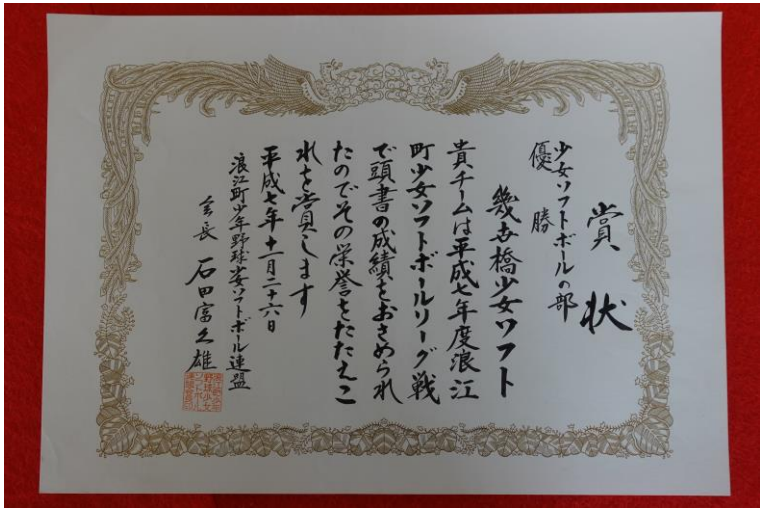 賞状
少女ソフトボールの部
優勝
幾世橋少女ソフト
貴チームは平成七年度浪江
町少女ソフトボールリーグ戦
で頭書の成績をおさめられ
たのでその栄誉をたたえこ
れを賞します
平成七年十一月二十六日
浪江町少年野球少女ソフトボール連盟
会長 石田富久雄